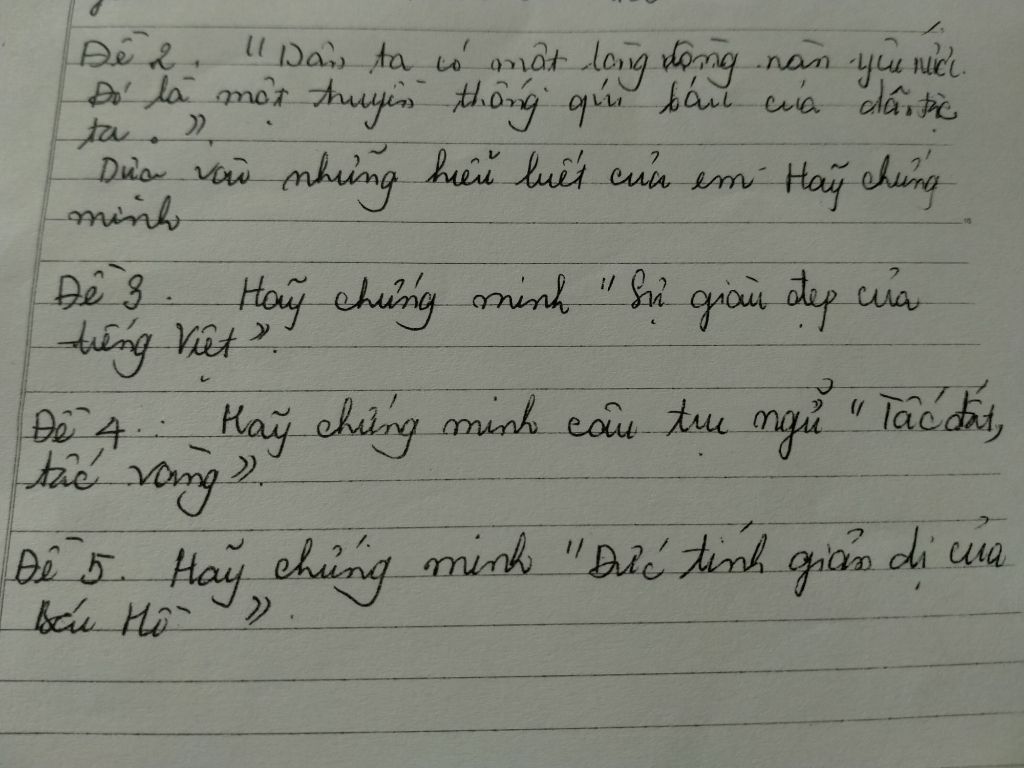 Đề 2. "Dân ta có một lòng nồng nàn yêu nước.
Đó là một truyền thống quí báu của dân tộc
ta.".
Dựa vào những hiểu biết của em Hãy chứng
minh
Đề 3. Hãy chứng minh "Sự giàu đẹp của
tiếng Việt".
Đề 4: Hãy chứng minh câu tục ngữ "Tấc đất,
tấc vàng".
Đề 5. Hãy chứng minh "Đức tính giản dị của
Bác Hồ".